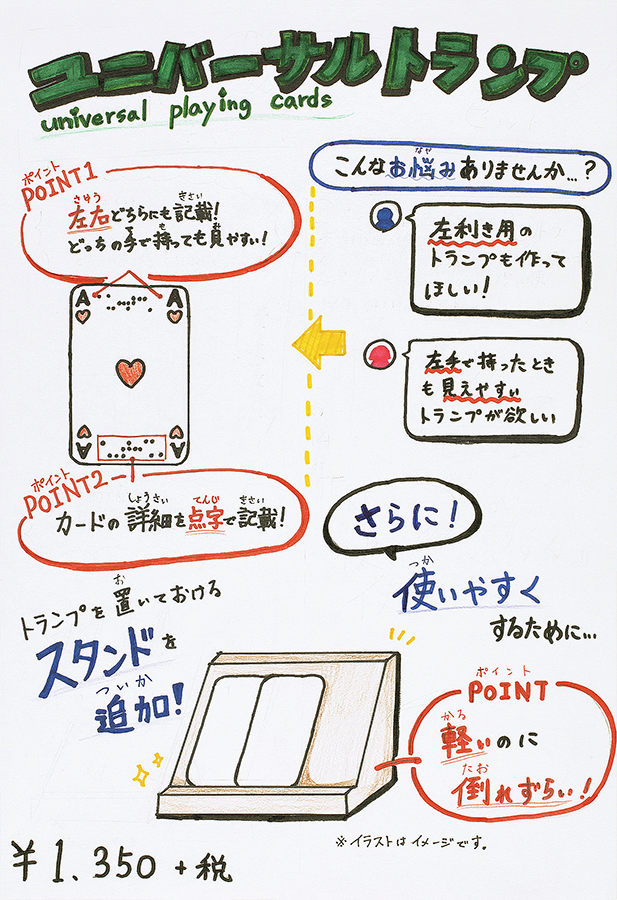 ユニバーサルトランプ
universal playing cards
こんなお悩みありませんか…?
なや
左利き用の
トランプも作って
ほしい!
左手で持ったとき
も見えやすい
トランプが欲しい
ポイント
POINT1
さゆう
きさい
左右どちらにも記載!
て
も
み
どっちの手で持っても見やすい!
A
A
A
A
ポイント
POINT2
しょうさい
てんじ
きさい
カードの詳細を点字で記載!
さらに!
つか
使いやすく
するために…
お
トランプを置いておける
スタンドを
ついか
追加!
ポイント
POINT
かる
軽いのに
たお
倒れずらい!
※イラストはイメージです。
¥1.350+税